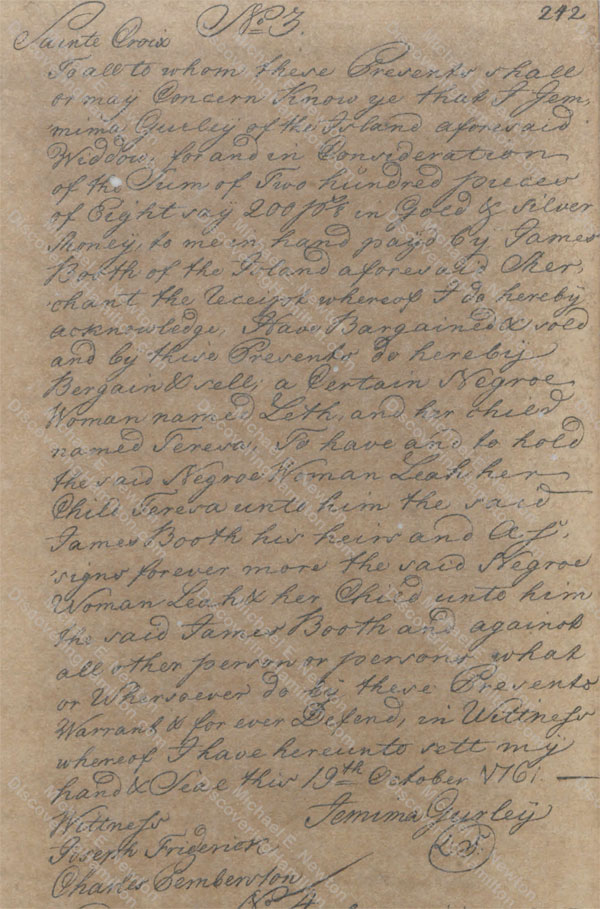 No. 3.
242
Sainte Croix
To all to whom these Presents shall
or may Concern Know ye that I Jem,
mima Gurley of the Island aforesaid
Widdow, for and in Consideration
of the Sum of Two hundred pieces
of Eight say 200 in Gold & Silver
Money, to me in hand payd by James
Booth of the Island aforesaid Mer,
chant the receipt whereof I do hereby
acknowledge, Have Bargained & sold
and by these Presents do hereby
Bergain & sell, a Certain Negroe
Woman named Leth, and her Child
named Teresa, To have and to hold
the said Negroe Woman Leah, her
Child Teresa unto him the said
James Booth his heirs and As,
signs forever more the said Negroe
Woman Leah & her Child unto him
the said James Booth and against
all other person or persons what
or Whersoever do by these Presents
Warrant & for ever Defend, in Wittness
whereof I have hereunto sett my
hand & Seal this 19th October 1761. —
Wittness
Jemima Gurley
Joseph Friderick
LS
Charles Pemberton
No. 4